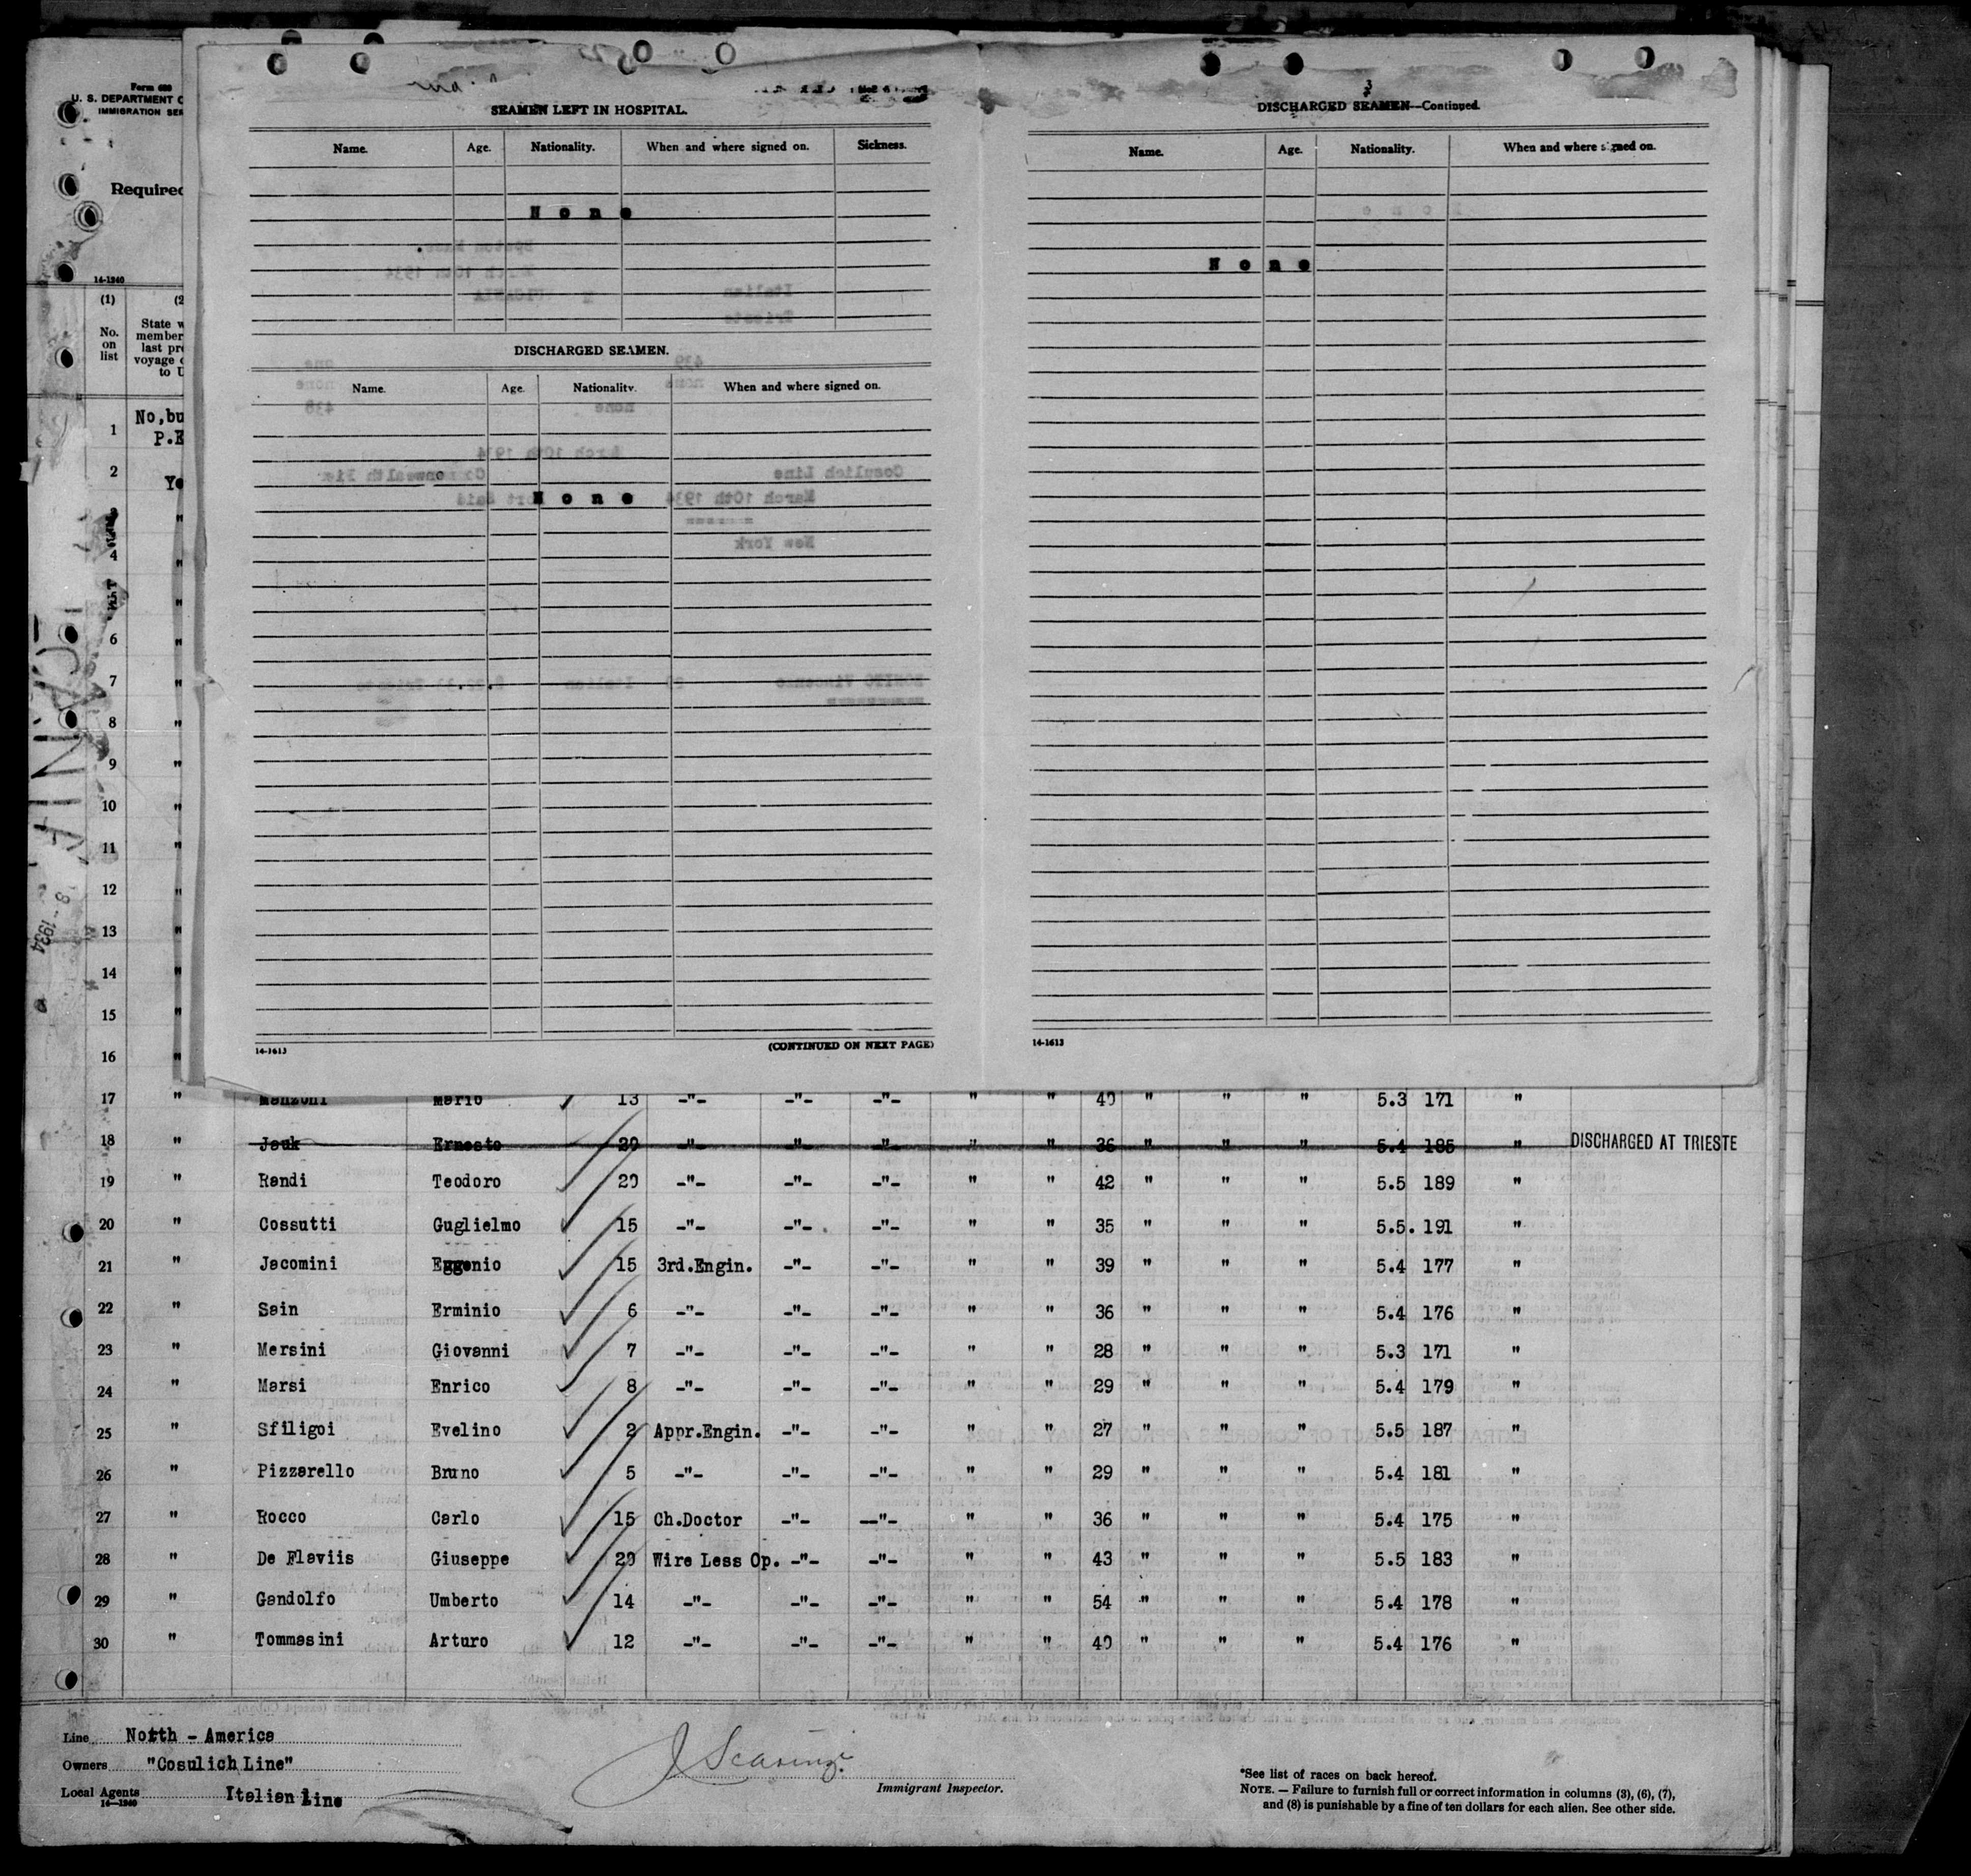 Form 680
U. S. DEPARTMENT O
IMMIGRATION SER
Required
14-1240
(1)
No.
on
list
State w
member
last pre
voyage o
to U
No,bu
P.E
Ye
SEAMEN LEFT IN HOSPITAL.
Name. Age. Nationality. When and where signed on. Sickness.
None
DISCHARGED SEAMEN.
Name. Age. Nationality. When and where signed on.
None
14-1613 (CONTINUED ON NEXT PAGE)
3
DISCHARGED SEAMEN—Continued.
Name. Age. Nationality. When and where signed on.
None
14-1613
1
2
4
6
7 "
8 "
9 "
10 "
11 "
12 "
13 "
14 "
15 "
16 "
17 " Manzoni Mario 13 -"- -"- -"- " " 40 " " " 5.3 171 "
18 " Jauk Ernesto 20 -"- " " " " 36 " " " 5.4 185 " DISCHARGED AT TRIESTE
19 " Randi Teodoro 20 -"- -"- -"- " " 42 " " " 5.5 189 "
20 " Cossutti Guglielmo 15 -"- -"- -"- " " 35 " " " 5.5. 191 "
21 " Jacomini Eggenio 15 3rd.Engin. -"- -"- " " 39 " " " 5.4 177 "
22 " Sain Erminio 6 -"- -"- -"- " " 36 " " " 5.4 176 "
23 " Mersini Giovanni 7 -"- -"- -"- " " 28 " " " 5.3 171 "
24 " Marsi Enrico 8 -"- -"- -"- " " 29 " " " 5.4 179 "
25 " Sfiligoi Evelino 2 Appr.Engin. -"- -"- " " 27 " " " 5.5 187 "
26 " Pizzarello Bruno 5 -"- -"- -"- " " 29 " " " 5.4 181 "
27 " Rocco Carlo 15 Ch.Doctor -"- -"- " " 36 " " " 5.4 175 "
28 " De Flaviis Giuseppe 20 Wire Less Op. -"- -"- " " 43 " " " 5.5 183 "
29 " Gandolfo Umberto 14 -"- -"- -"- " " 54 " " " 5.4 178 "
30 " Tommasini Arturo 12 -"- -"- -"- " " 40 " " " 5.4 176 "
Line North - America
Owners "Cosulich Line"
Local Agents Italian Line
14-1240
Immigrant Inspector.
*See list of races on back hereof.
NOTE. — Failure to furnish full or correct information in columns (3), (6), (7),
and (8) is punishable by a fine of ten dollars for each alien. See other side.